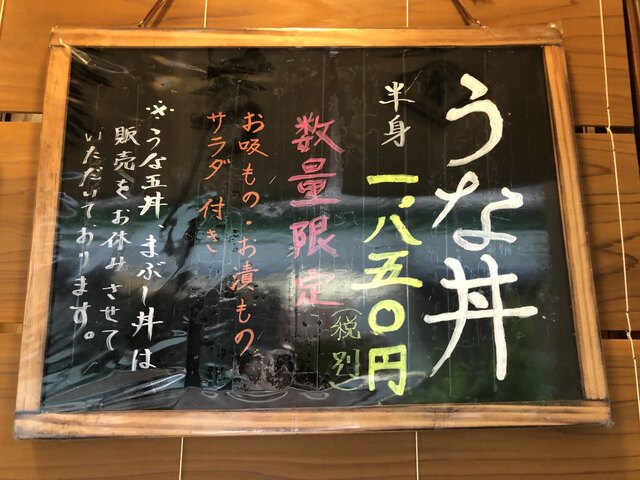 うな丼
半身 一、八五〇円
(税別)
数量限定
お吸もの・お漬もの
サラダ付き
※うな玉丼、まぶし丼は
販売をお休みさせて
いただいております。